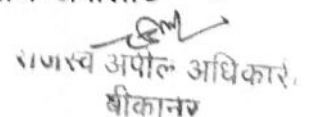 राजस्व अपील अधिकारी,
बीकानेर